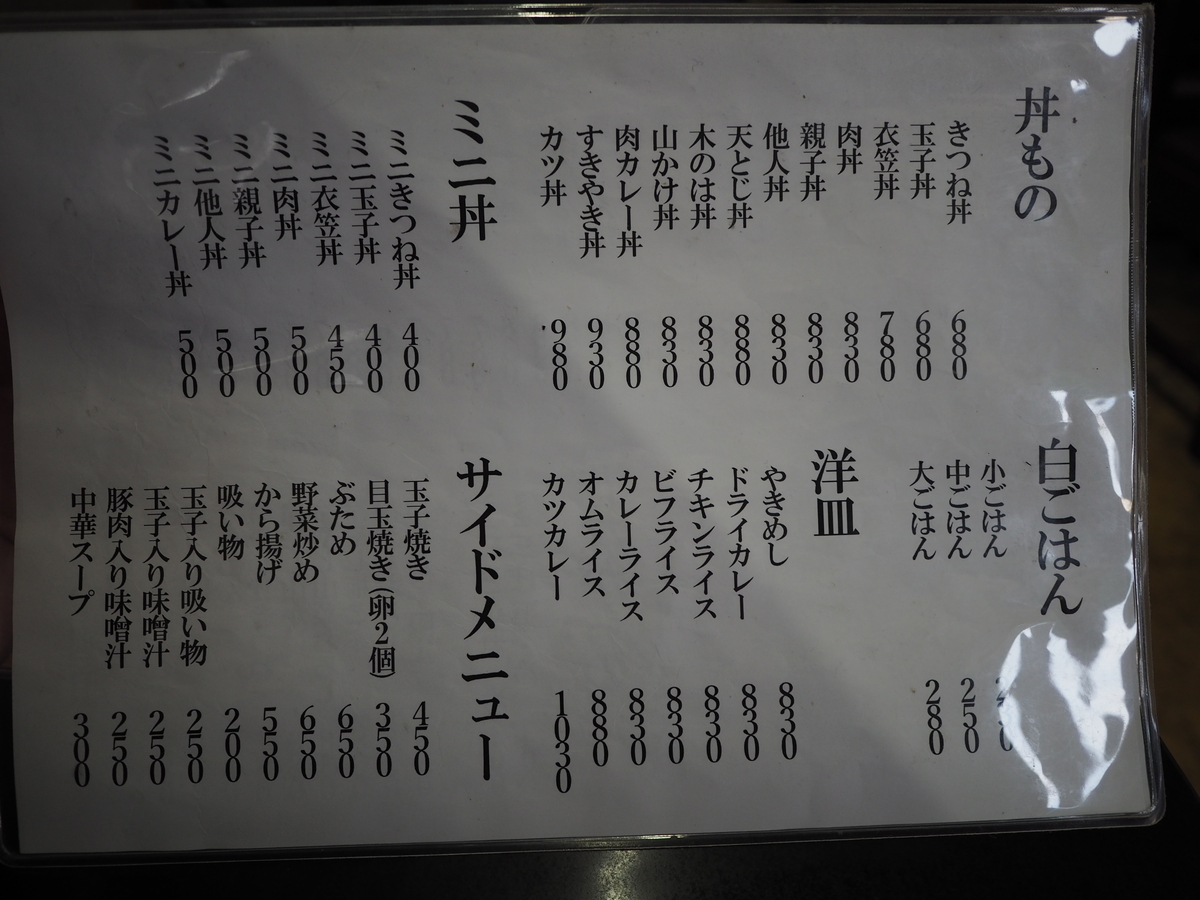 丼もの
きつね丼 680
玉子丼 680
衣笠丼 780
肉丼 830
親子丼 830
他人丼 830
天とじ丼 880
木のは丼 830
山かけ丼 830
肉カレー丼 880
すきやき丼 930
カツ丼 980
ミニ丼
ミニきつね丼 400
ミニ玉子丼 400
ミニ衣笠丼 450
ミニ肉丼 500
ミニ親子丼 500
ミニ他人丼 500
ミニカレー丼 500
白ごはん
小ごはん
中ごはん 250
大ごはん 280
洋皿
やきめし 830
ドライカレー 830
チキンライス 830
ビフライス 830
カレーライス 830
オムライス 880
カツカレー 1030
サイドメニュー
玉子焼き 450
目玉焼き(卵2個) 350
ぶため 650
野菜炒め 650
から揚げ 550
吸い物 200
玉子入り吸い物 250
玉子入り味噌汁 250
豚肉入り味噌汁 250
中華スープ 300